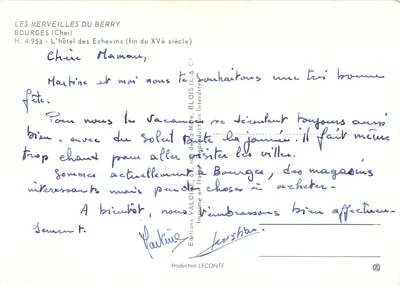 LES MERVEILLES DU BERRY
BOURGES (Cher)
H. 4.954 - L'hôtel des Echevins (fin du XVè siècle)
Chère Maman,
Martine et moi nous te souhaitons une très bonne
fête.
Pour nous les vacances se déroulent toujours aussi
bien, avec du soleil toute la journée : il fait même
trop chaud pour aller visiter les villes.
Sommes actuellement à Bourges, des magasins
intéressants mais pas de choses à acheter.
A bientôt, nous t'embrassons bien affectueu-
sement.
Martine Christian
Editions VALOIRE, rue BLOIS (L. & C.)
Imprimé en Reproduction Interdite
Production LECONTE